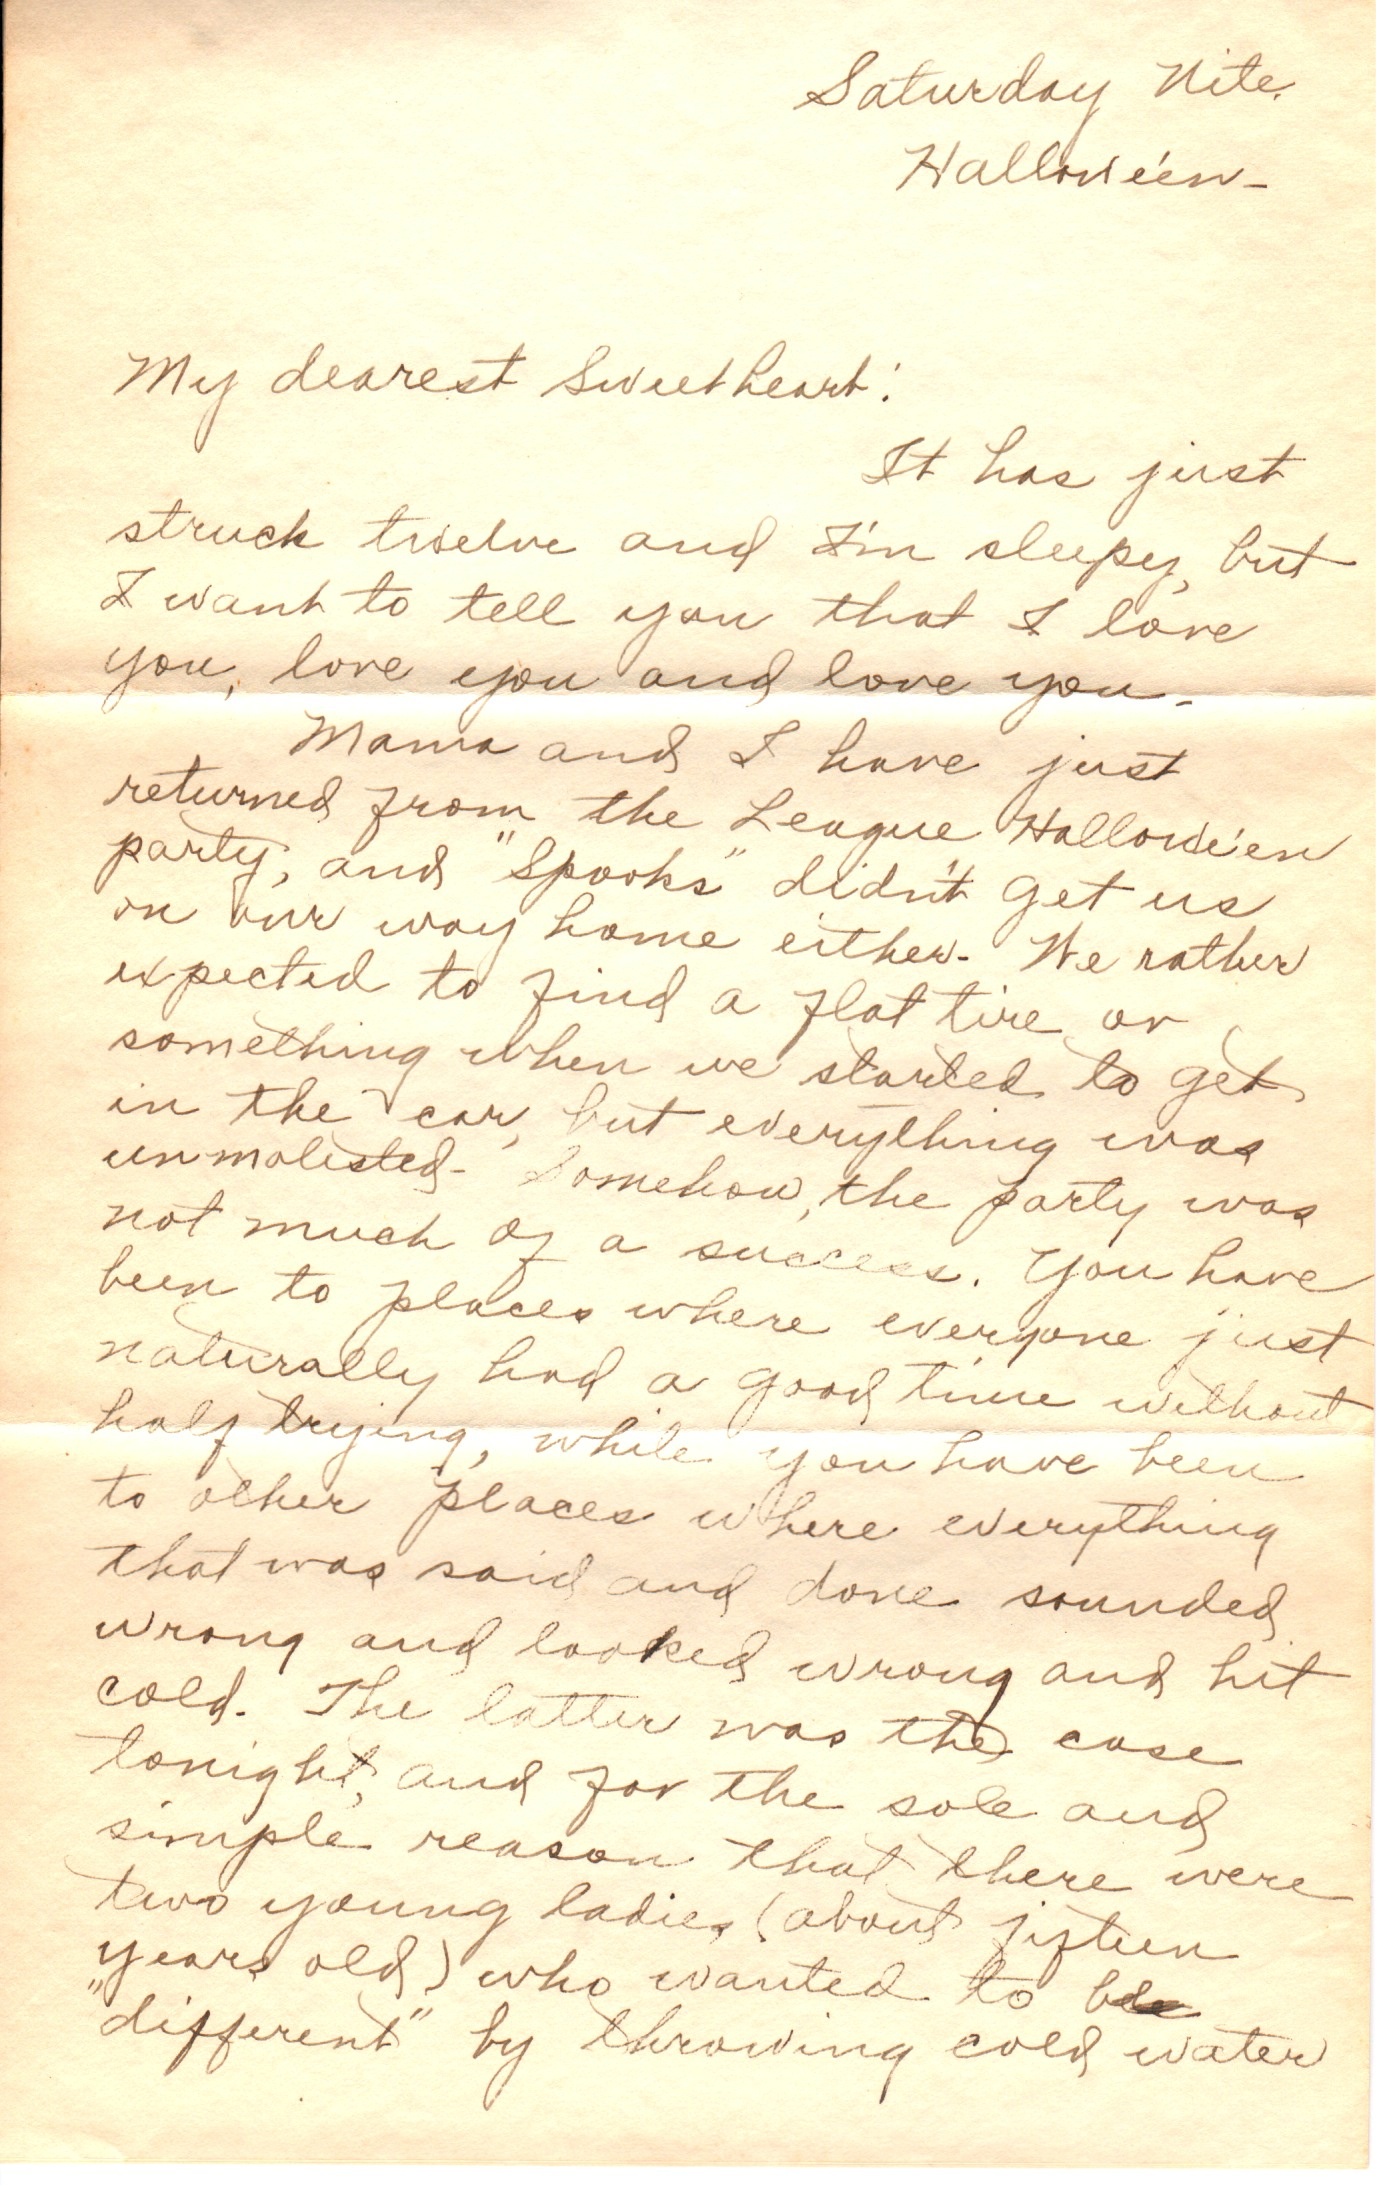 Saturday Nite.
Hallowe'en-
My dearest Sweetheart:
It has just
struck twelve and I'm sleepy, but
I want to tell you that I love
you, love you and love you.
Mama and I have just
returned from the League Hallowe'en
party, and "Spooks" didn't get us
on our way home either. We rather
expected to find a flat tire or
something when we started to get
in the car, but everything was
unmolested. Somehow, the party was
not much of a success. You have
been to places where everyone just
naturally had a good time without
half trying, while you have been
to other places where everything
that was said and done sounded
wrong and looked wrong and hit
cold. The latter was the case
tonight, and for the sole and
simple reason that there were
two young ladies (about fifteen
years old) who wanted to be
"different" by throwing cold water